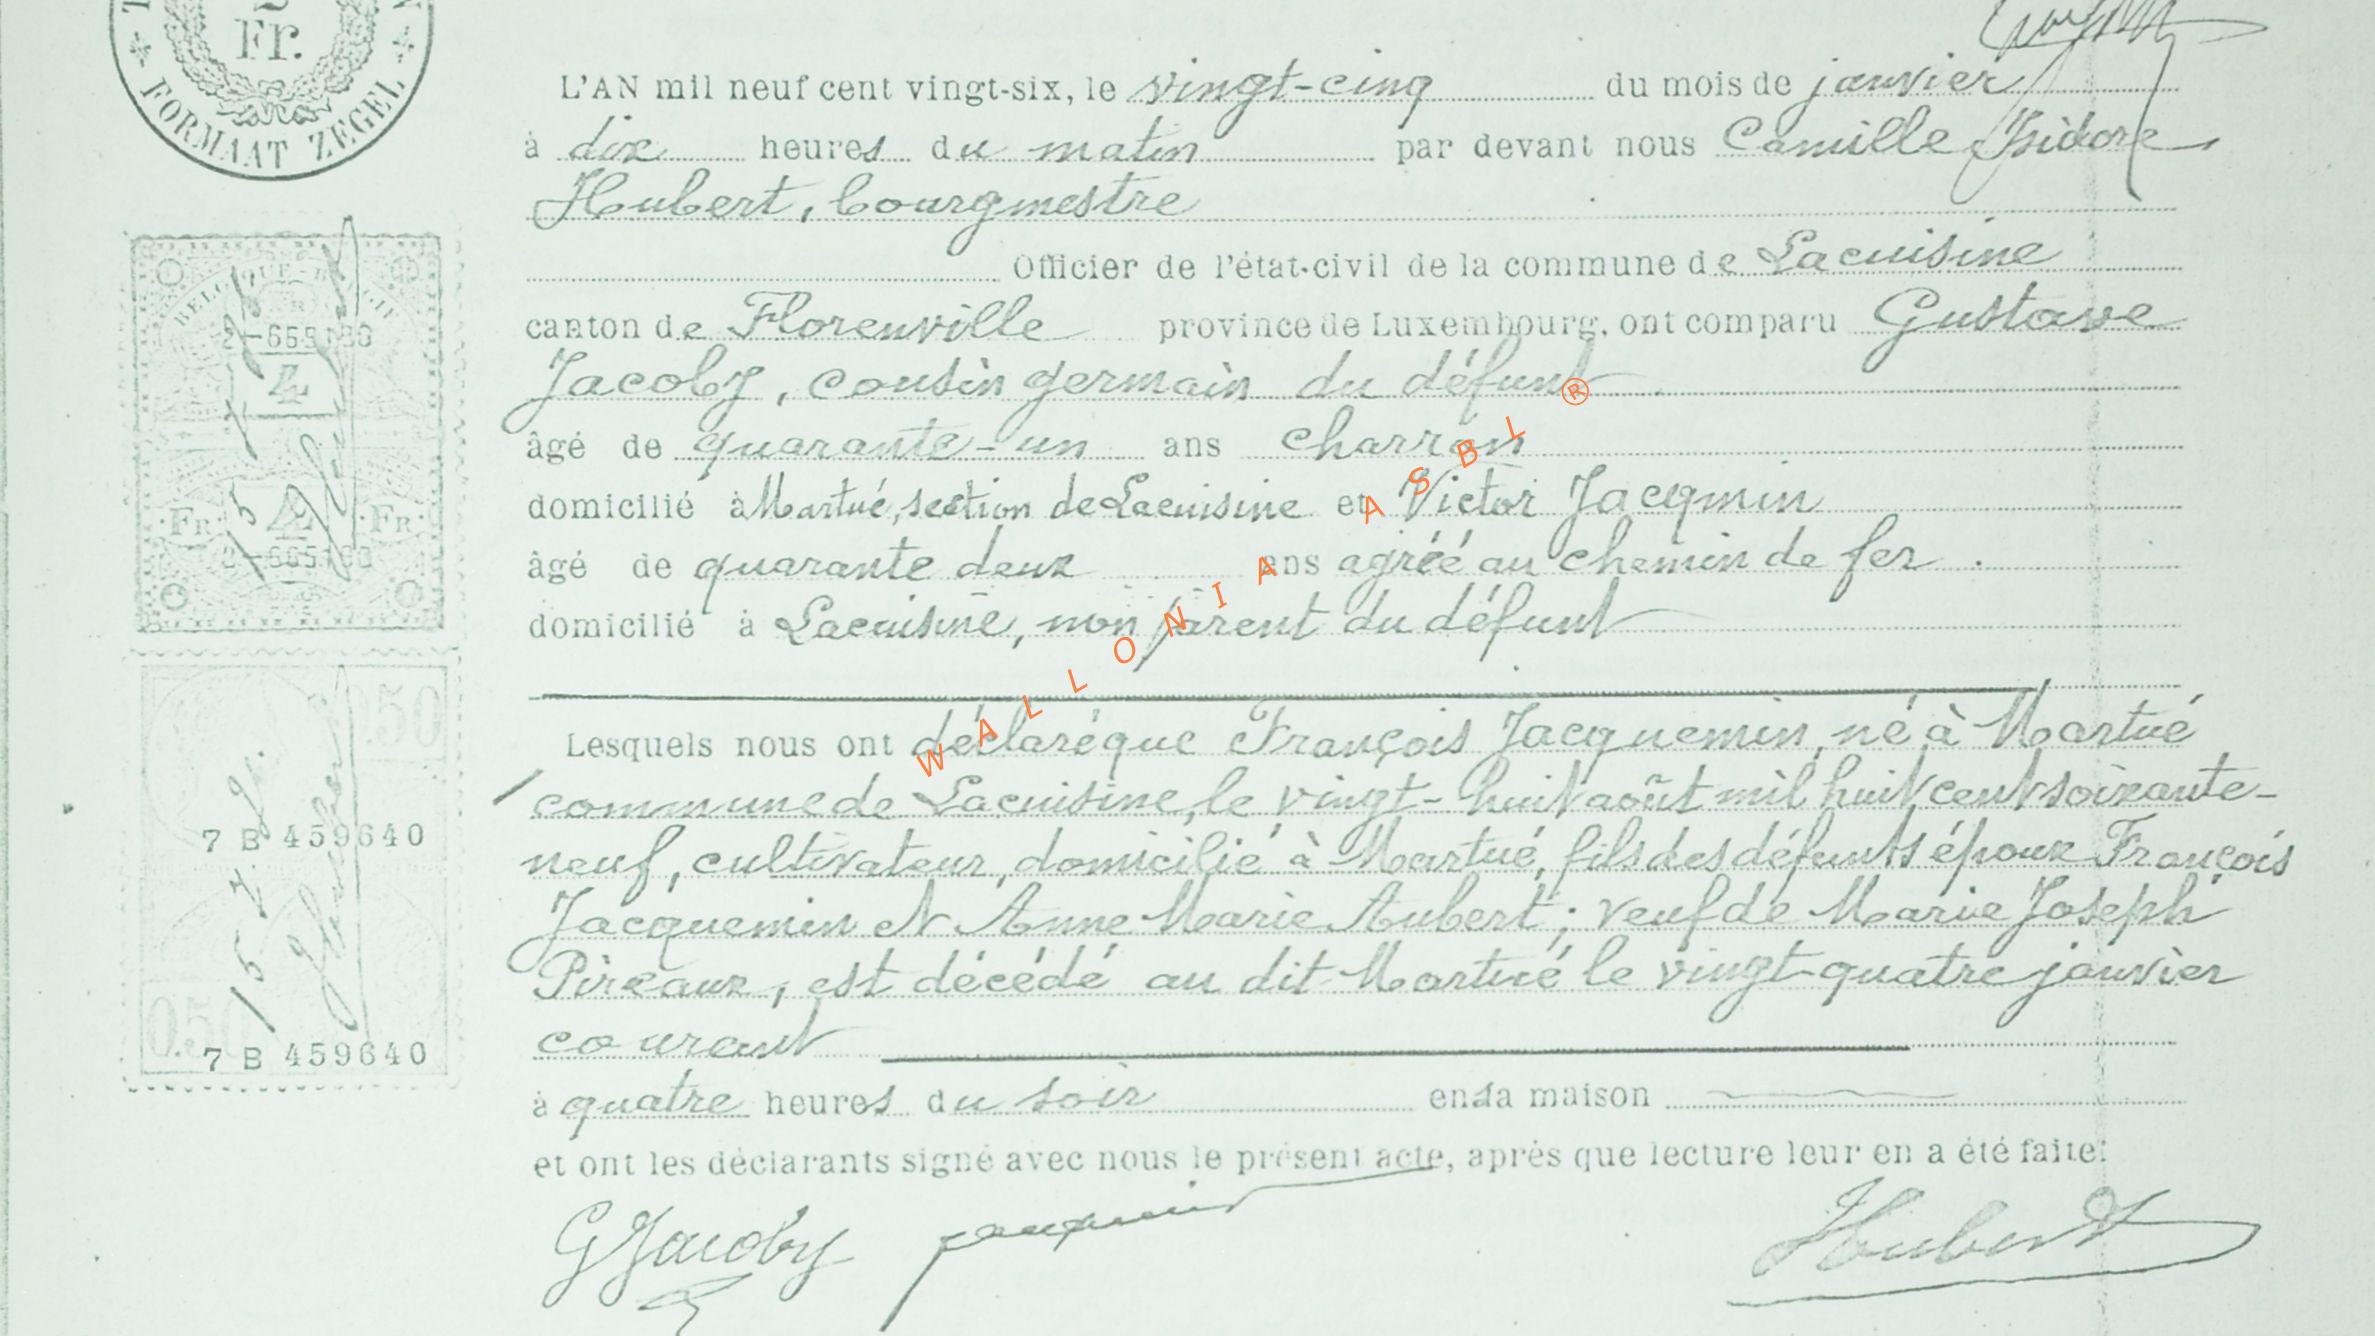 Fr.
FORMAAT ZEGEL
L'AN mil neuf cent vingt-six, le vingt-cinq du mois de janvier
à dix heures du matin par devant nous Camille Isidore
Hubert, bourgmestre
Officier de l'état-civil de la commune de Lacuisine
canton de Florenville province de Luxembourg, ont comparu Gustave
Jacoby, cousin germain du défunt
âgé de quarante-un ans charron
domicilié à Martué, section de Lacuisine et Victor Jacqmin
âgé de quarante deux ans agréé au chemin de fer.
domicilié à Lacuisine, non parent du défunt
Lesquels nous ont déclaré que François Jacquemin, né à Martué
commune de Lacuisine, le vingt-huit août mil huit cent soixante-
neuf, cultivateur, domicilié à Martué, fils des défunts époux François
Jacquemin et Anne Marie Aubert; veuf de Marie Joseph
Pireaux, est décédé au dit Martué le vingt-quatre janvier
courant
à quatre heures du soir en sa maison
et ont les déclarants signé avec nous le présent acte, après que lecture leur en a été faite.
GJacoby Hubert
4
Fr 4 Fr
0.50
7 B 459640
0.50
7 B 459640
WALLONIA ASBL ®